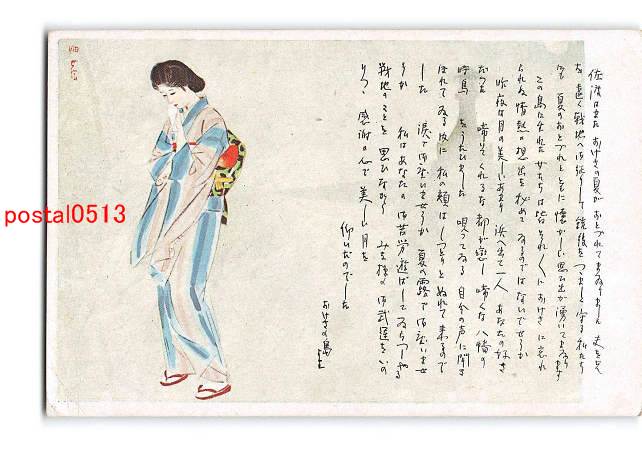 佐渡はまた おけさの夏が おとづれてまゐりました 夫を兄
を遠く戦地へ御送りして銃後をつましく守る私たち
にも 夏のおとづれとともに懐かしい思出が湧いてまゐります
この島に生れた女たちは皆それぞれにおけさに忘れ
られぬ情熱の想出を秘めてゐるのではないでせうか
昨夜は月の美しいあまり 浜へ出て一人 あなたの好き
だつた 啼いてくれるな 都が恋し 啼くな八幡の
をうたひました 唄つてゐる 自分の声に聞き
ほれてゐる内に 私の頬はしつとりとぬれて来るので
した 涙で御座いませうか 夏の露で御座いませ
うか 私はあなたの御苦労遊ばしてゐらつしやる
戦地のことを思ひながら み を 御武運をいの
りつゝ 感謝の心で 美しい月を
仰いだのでした
おけさの島
postal0513